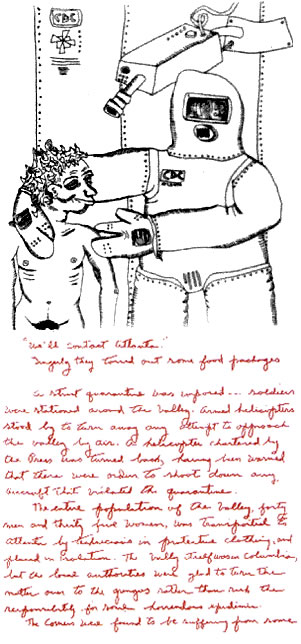 CDC
CDC
"We'll contact Atlanta."
they tossed out some food packages
A strict quarantine was imposed... soldiers
were stationed around the Valley. Armed helicopters
stood by to turn away any attempt to approach
the valley by air. A helicopter chartered by
the Press was turned back, having been warned
that there were orders to shoot down any
aircraft that violated the quarantine.
The entire population of the Valley, forty
men and thirty five women, was transported to
Atlanta by technicians in protective clothing, and
placed in isolation. The Valley itself was in Columbia,
but the local authorities were glad to turn the
matter over to the gringos rather than risk the
responsibility for some horrendous epidemic.
The were found to be suffering from some